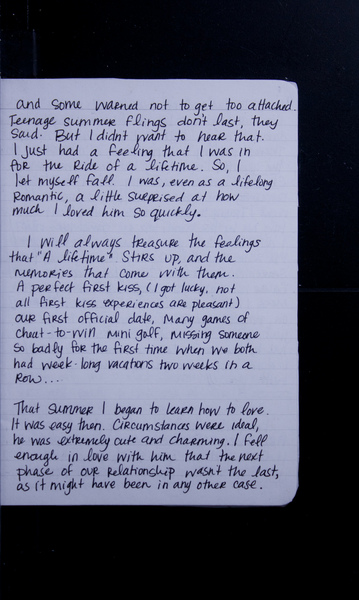 and some warned not to get too attached.
Teenage summer flings don't last, they
said. But I didnt want to hear that.
I just had a feeling that I was in
for the ride of a lifetime. So, I
let myself fall. I was, even as a lifelong
romantic, a little surprised at how
much I loved him so quickly.
I will always treasure the feelings
that "A lifetime" stirs up, and the
memories that come with them.
A perfect first kiss, (I got lucky. not
all first kiss experiences are pleasant)
our first official date, many games of
cheat-to-win mini golf, missing someone
so badly for the first time when we both
had week-long vacations two weeks in a
row...
That summer I began to learn how to love.
It was easy then. Circumstances were ideal,
he was extremely cute and charming. I fell
enough in love with him that the next
phase of our relationship wasn't the last,
as it might have been in any other case.